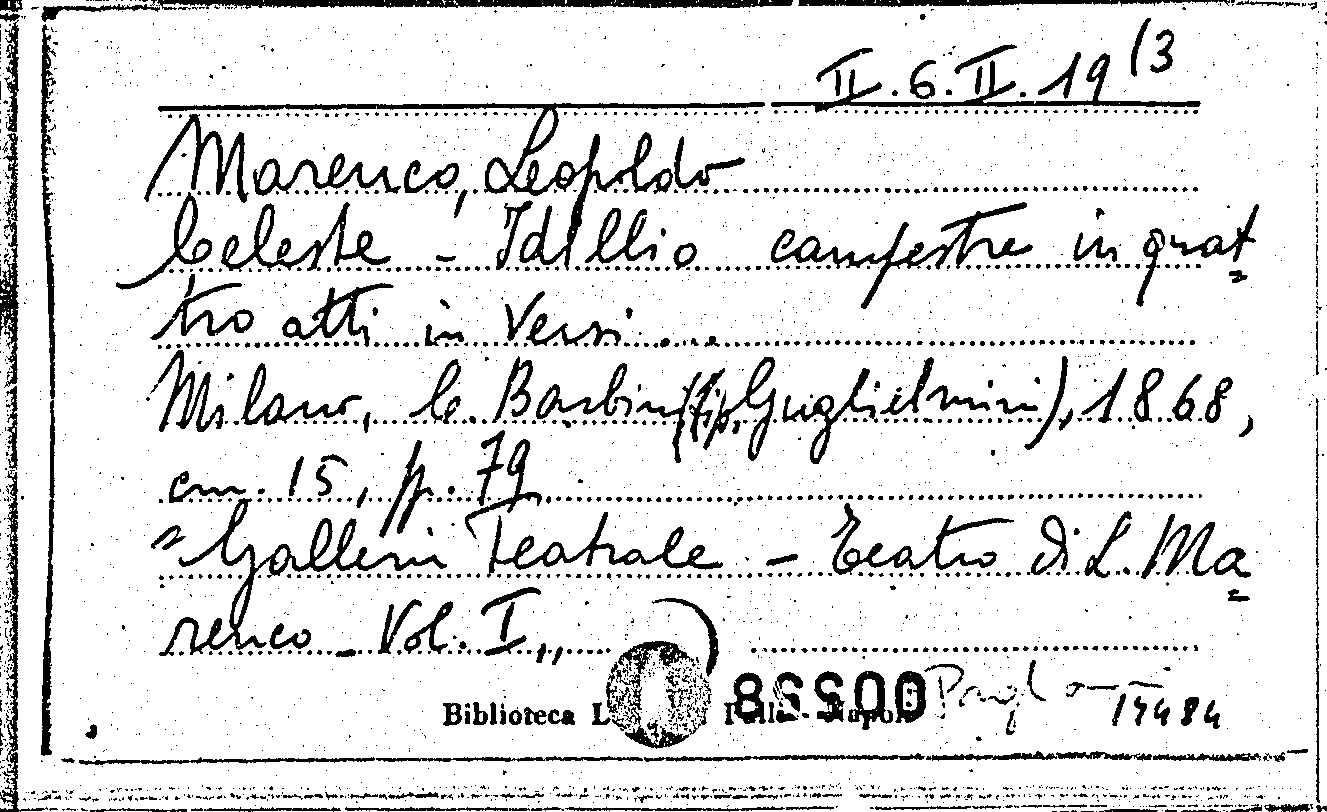 II.6.II.19(3
Marenco, Leopoldo
Celeste - Idillio campestre in quat=
tro atti in versi ...
Milano, C. Barbini (tip. Guglielmini), 1868,
cm. 15, pp. 79.
"Galleria Teatrale - Teatro di L. Ma=
renco - Vol. I,,
Biblioteca
00558